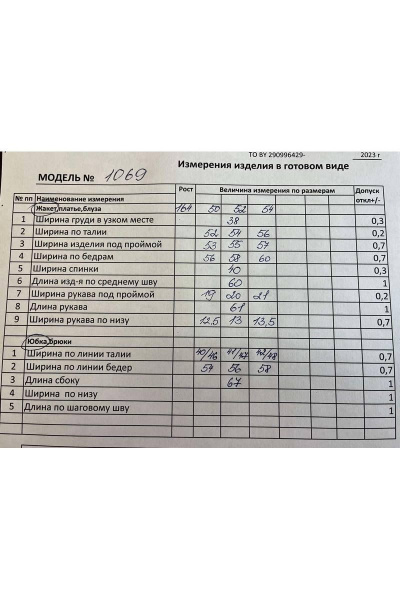 ТО BY 290996429- 2023 г
Измерения изделия в готовом виде
МОДЕЛЬ № 1069
№ пп Наименование измерения Рост Величина измерения по размерам Допуск откл+/-
Жакет,платье,блуза 164 50 52 54
1 Ширина груди в узком месте 38 0,3
2 Ширина по талии 52 54 56 0,2
3 Ширина изделия под проймой 53 55 57 0,7
4 Ширина по бедрам 56 58 60 0,7
5 Ширина спинки 40 0,3
6 Длина изд-я по среднему шву 60 1
7 Ширина рукава под проймой 19 20 21 0,2
8 Длина рукава 61 1
9 Ширина рукава по низу 12.5 13 13,5 0,7
Юбка,брюки
1 Ширина по линии талии 40/46 41/47 42/48 0,7
2 Ширина по линии бедер 54 56 58 0,7
3 Длина сбоку 67 1
4 Ширина по низу 1
5 Длина по шаговому шву 1